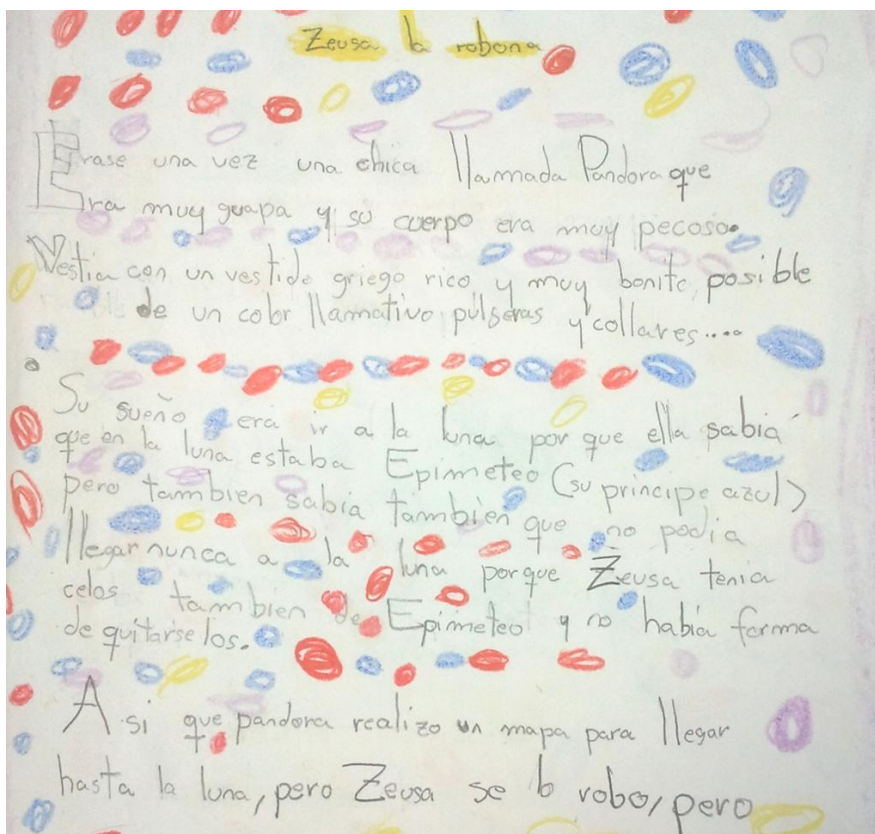 Zeusa la robona
Erase una vez una chica llamada Pandora que
Era muy guapa y su cuerpo era muy pecoso.
Vestia con un vestido griego rico y muy bonito, posible
de un color llamativo pulseras y collares....
Su sueño era ir a la luna por que ella sabia
que en la luna estaba Epimeteo (su principe azul)
pero tambien sabia tambien que no podia
llegar nunca a la luna porque Zeusa tenia
celos tambien de Epimeteo y no habia forma
de quitarselos.
A si que pandora realizo un mapa para llegar
hasta la luna, pero Zeusa se lo robo, pero